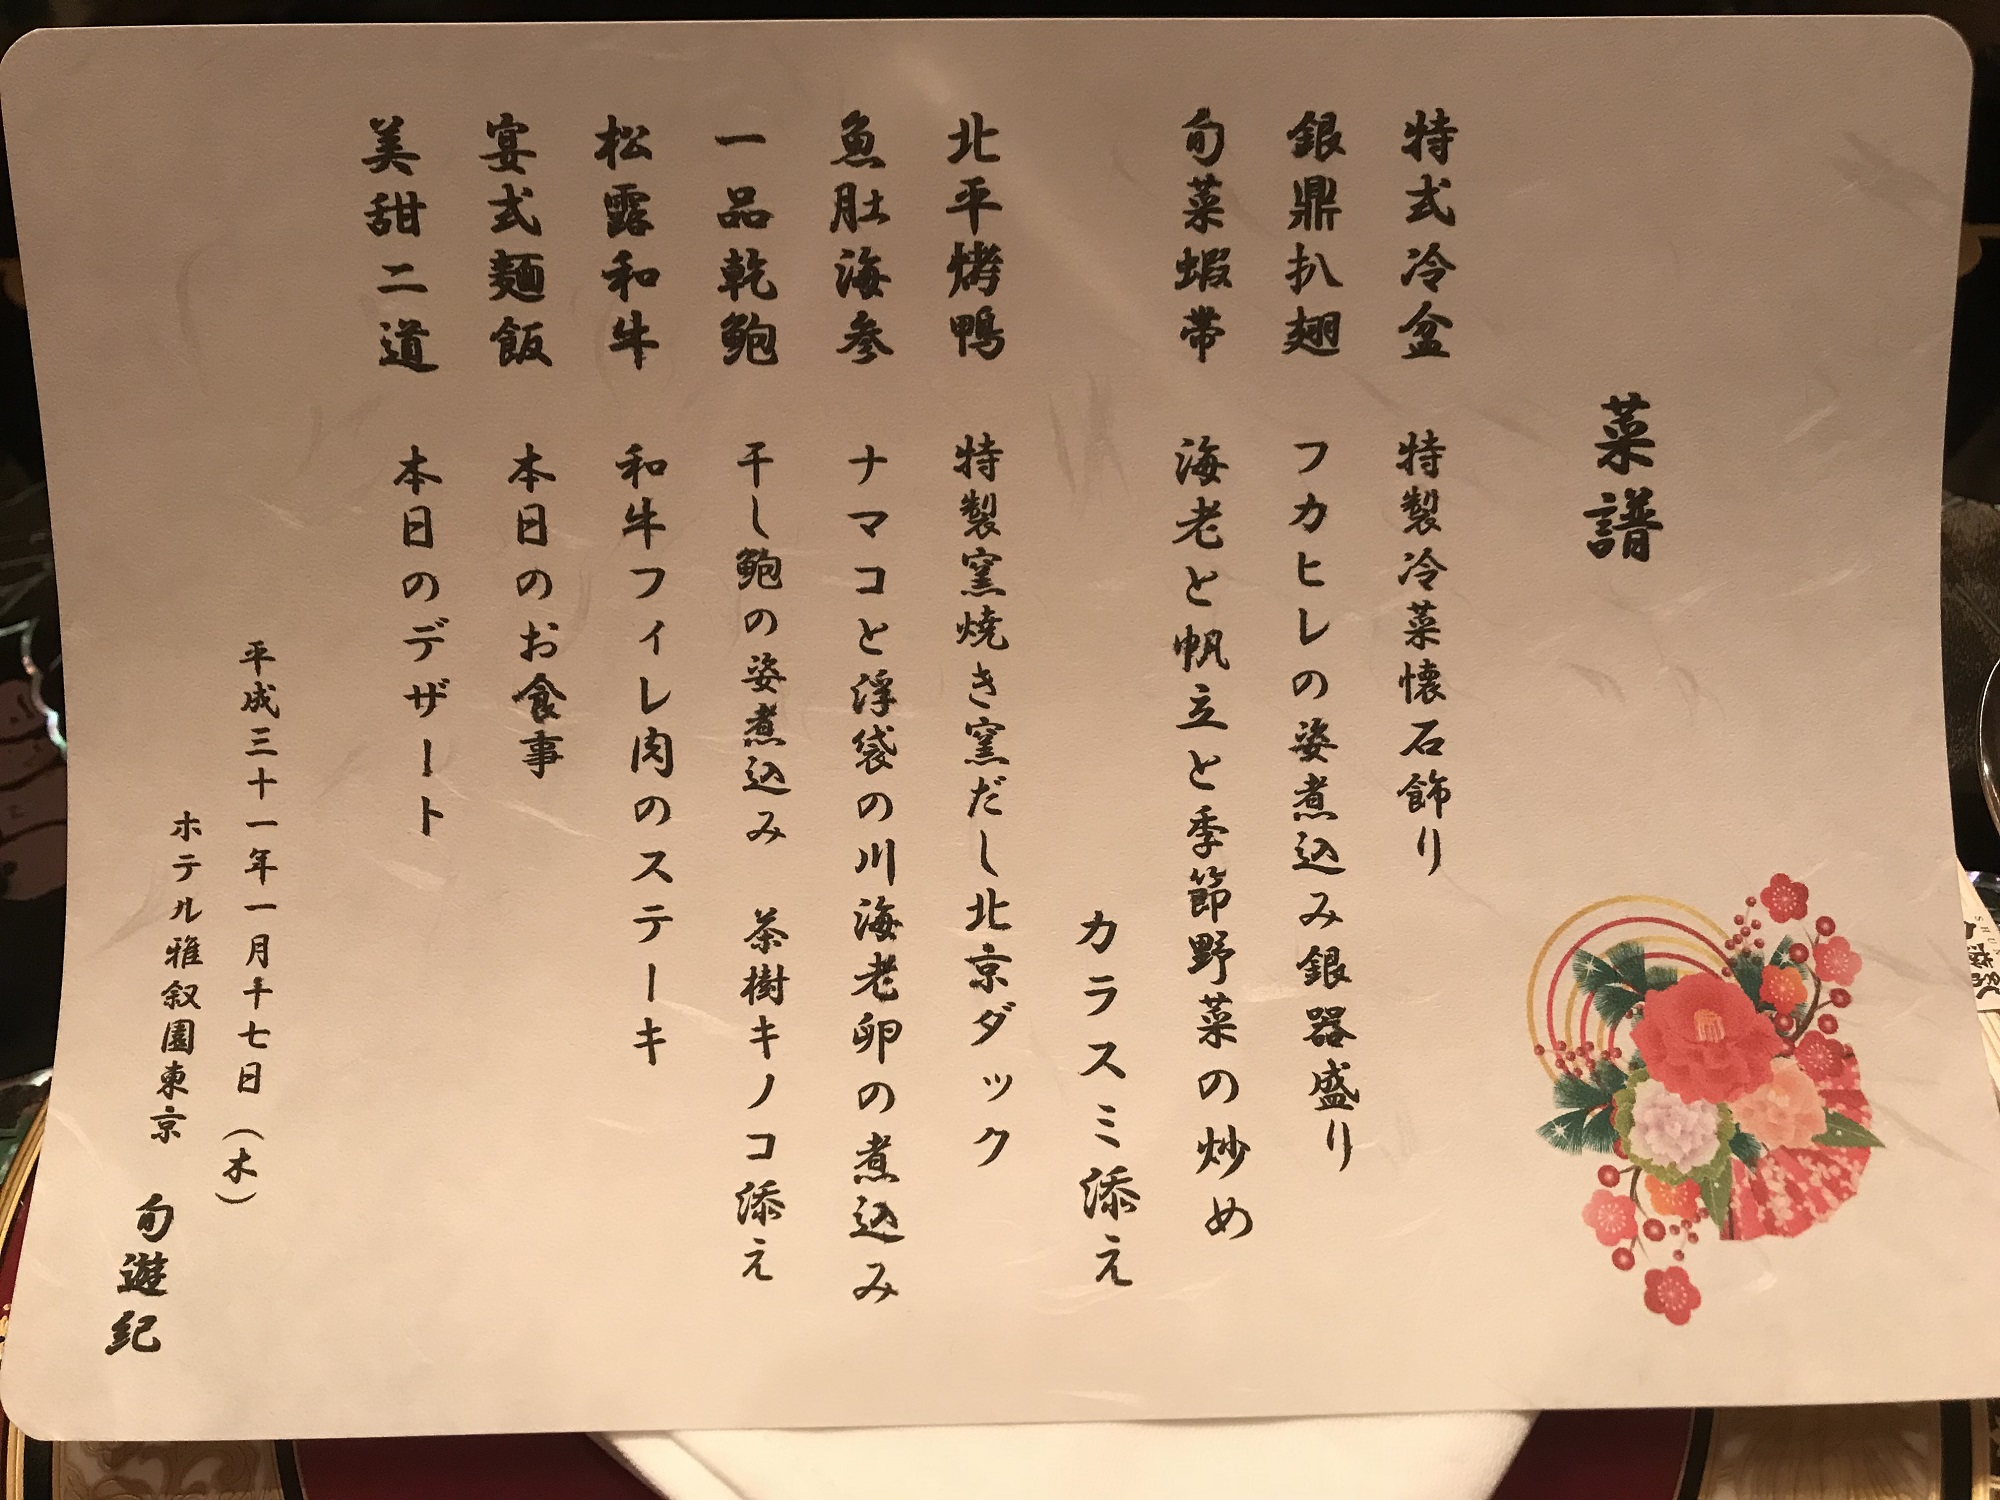 菜譜
特式冷盆 特製冷菜懐石飾り
銀鼎扒翅 フカヒレの姿煮込み銀器盛り
旬菜蝦帯 海老と帆立と季節野菜の炒め
カラスミ添え
北平烤鴨 特製窯焼き窯だし北京ダック
魚肚海参 ナマコと浮袋の川海老卵の煮込み
一品乾鮑 干し鮑の姿煮込み 茶樹キノコ添え
松露和牛 和牛フィレ肉のステーキ
宴式麺飯 本日のお食事
美甜二道 本日のデザート
平成三十一年一月十七日（木）
ホテル雅叙園東京 旬遊紀